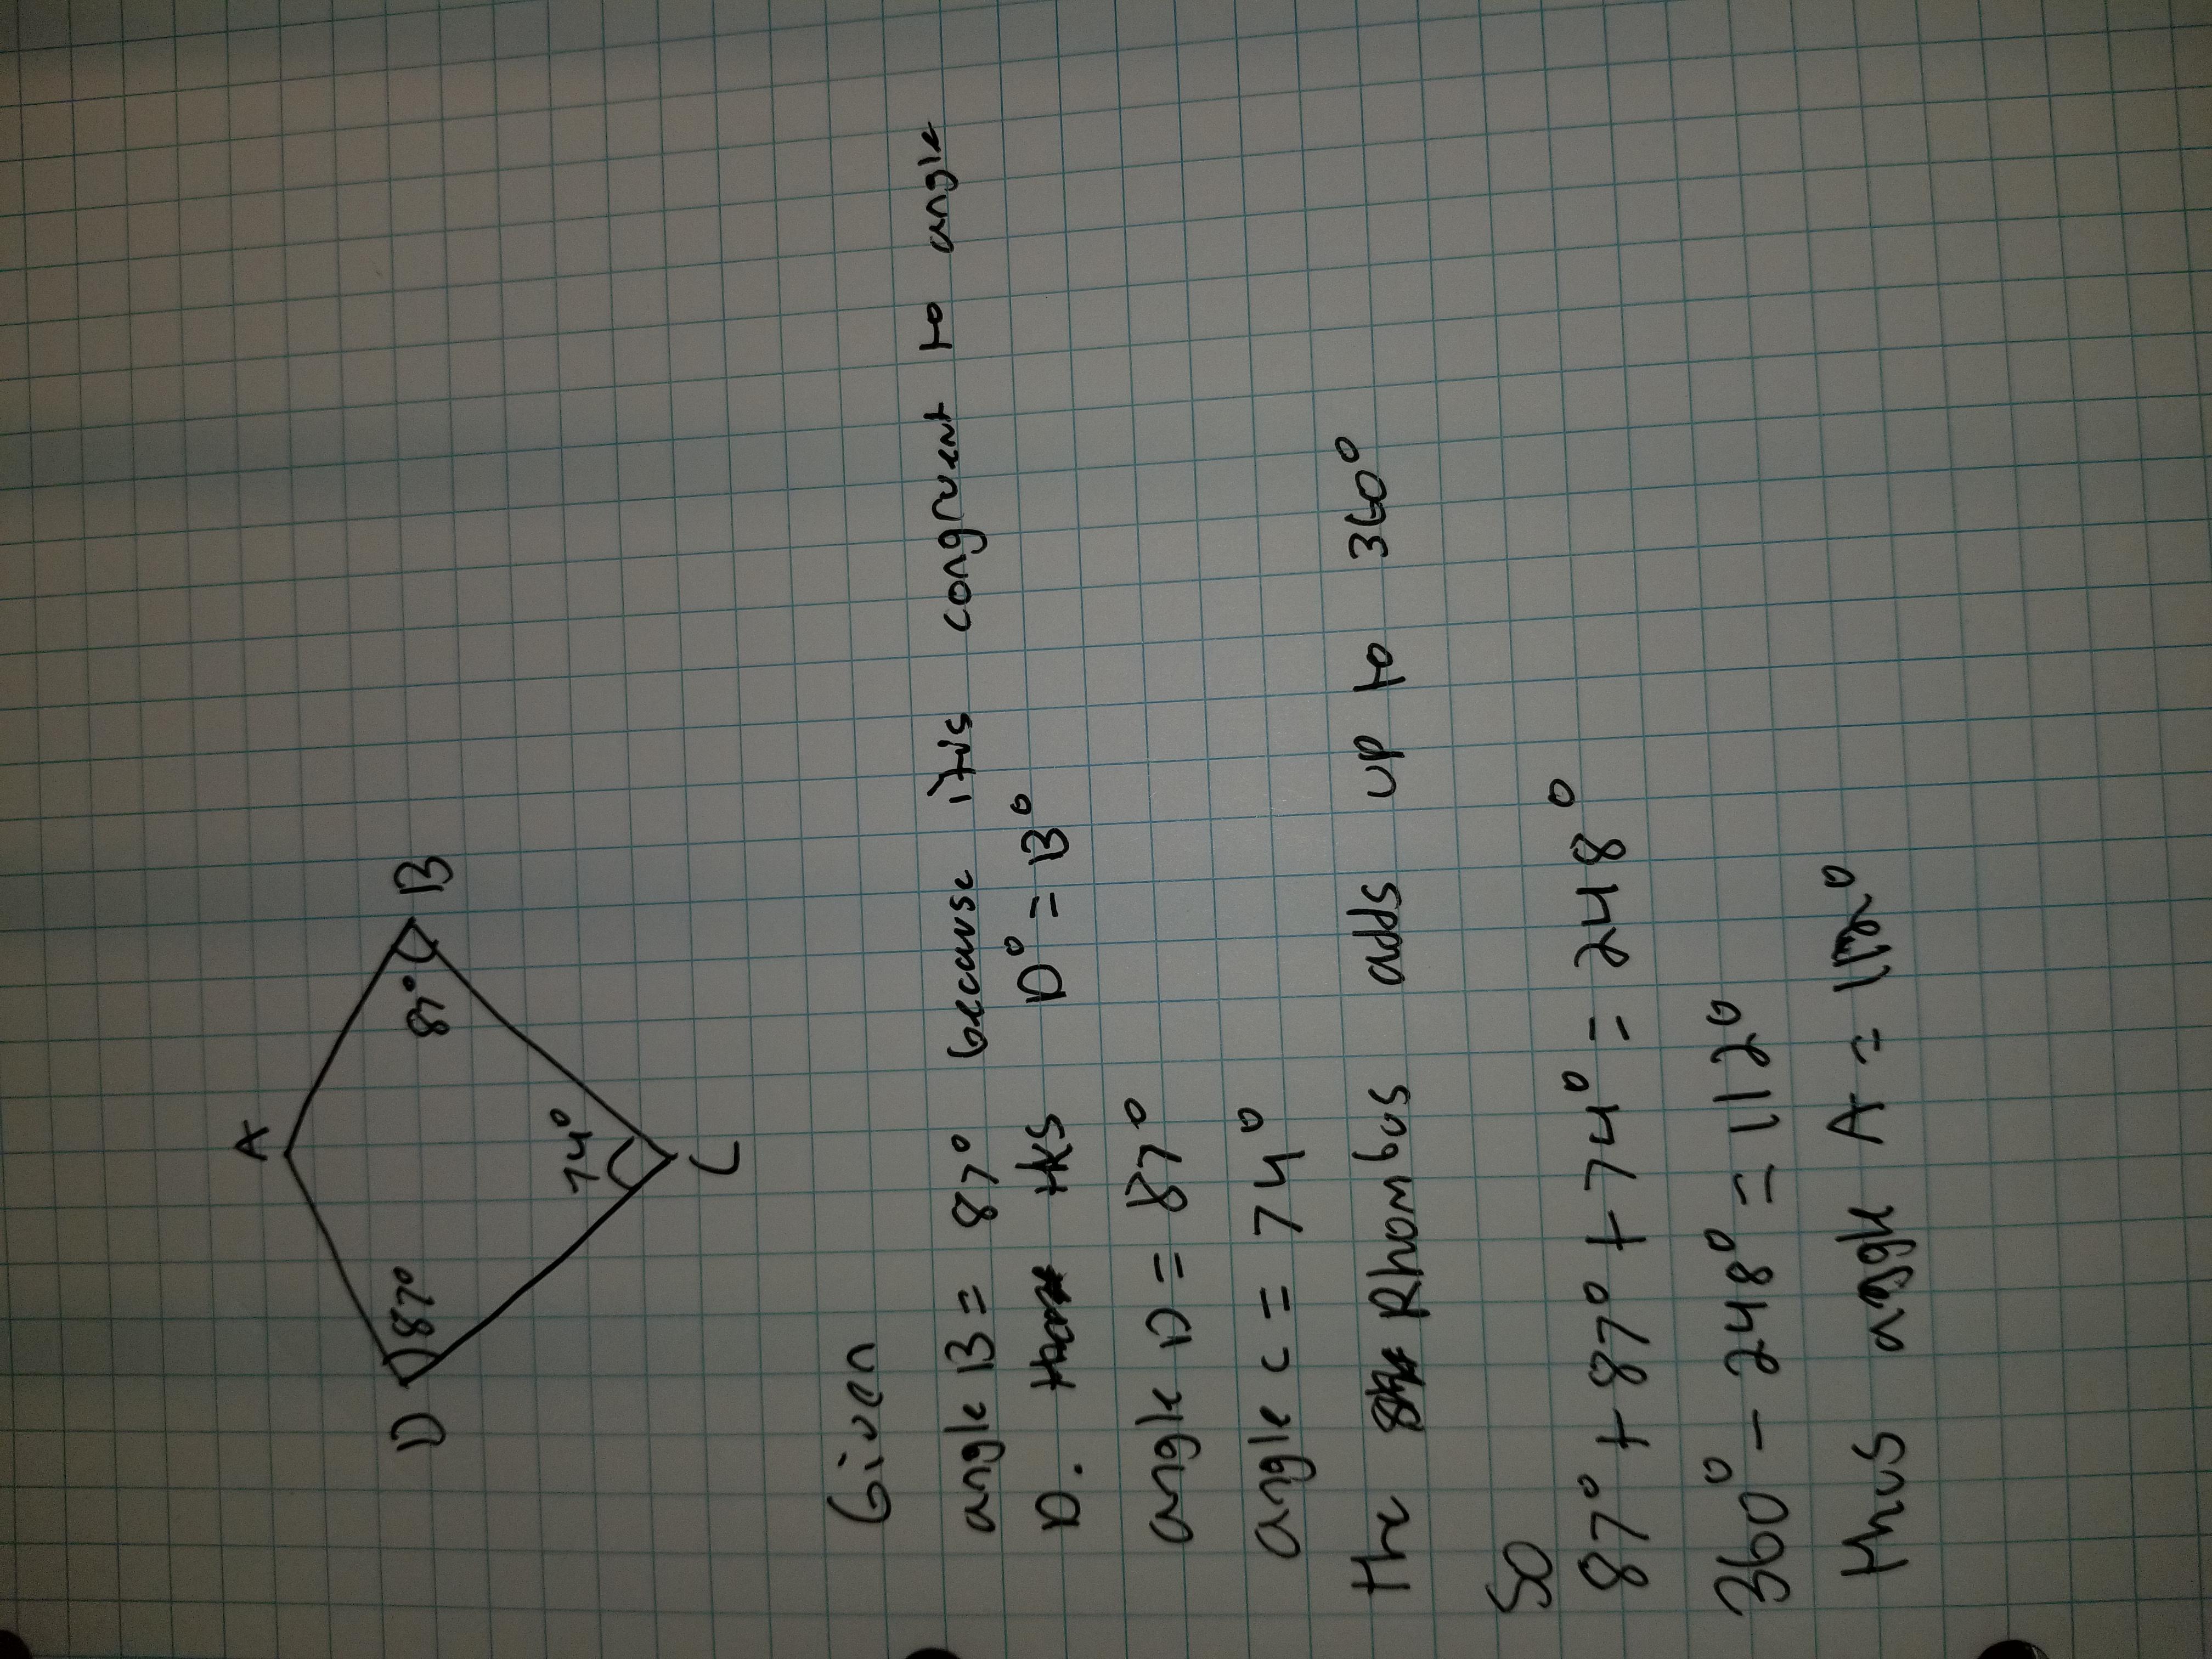 A
D 87° 87° B
74°
C
Given
angle B = 87° because it is congruent to angle
D. D° = B°
angle D = 87°
angle C = 74°
The Rhombus adds up to 360°
SO
87° + 87° + 74° = 248°
360° - 248° = 112°
thus angle A = 112°